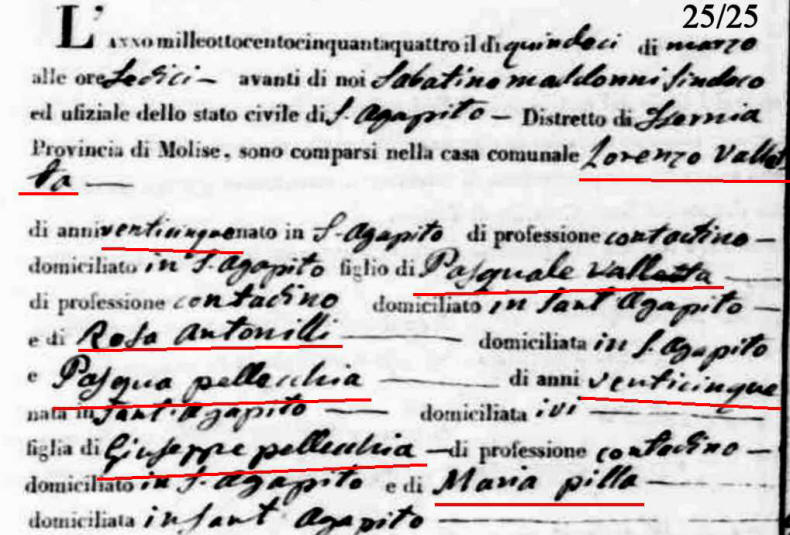 25/25
L'ANNO milleottocentocinquantaquattro il dì quindeci di marzo
alle ore Sedici – avanti di noi Sabatino maldonni Sindoco
ed ufiziale dello stato civile di S. Agapito – Distretto di Isernia
Provincia di Molise, sono comparsi nella casa comunale Lorenzo Vallet
ta
di anni venticinque nato in S. Agapito di professione contadino –
domiciliato in S. Agapito figlio di Pasquale Valletta
di professione contadino domiciliato in Sant Agapito –
e di Rosa Antonilli domiciliata in S. Agapito
e Pasqua pellecchia di anni venticinque
nata in Sant. Agapito domiciliata ivi
figlia di Giuseppe pellecchia – di professione contadino –
domiciliato in S. Agapito e di Maria pilla
domiciliata in Sant Agapito